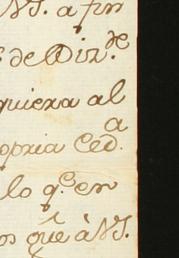 VS. a fin
de Diz.re
quiera al
opria Ced.a
lo q.e en
os que à VS.